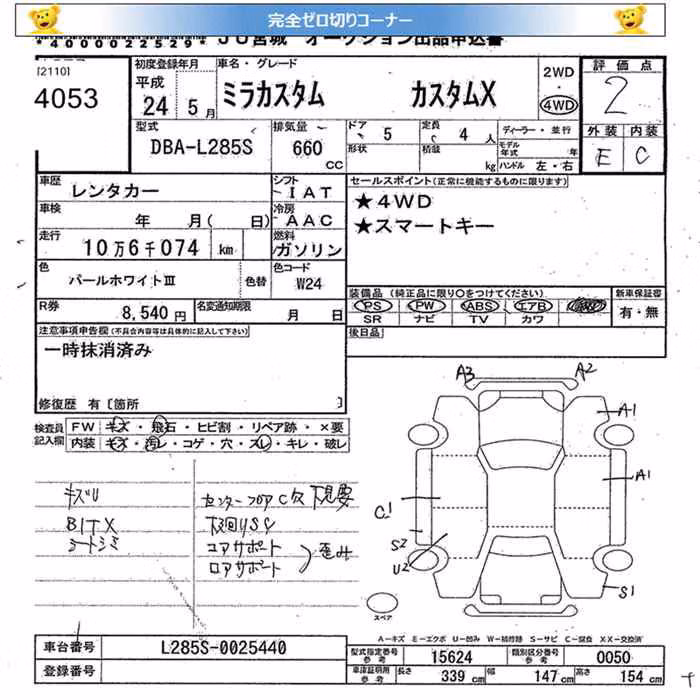 完全ゼロ切りコーナー
*4000022529* JU宮城 オークション出品申込書
[2110]
4053
初度登録年月
平成
24 5月
車名・グレード
ミラカスタム カスタムX
2WD
・
4WD
評価点
2
外装 内装
E C
型式
DBA-L285S
排気量
660
CC
ドア 5
定員 4 人
形状
積載 kg
ディーラー・並行
モデル年式 年
ハンドル 左・右
車歴
レンタカー
シフト
IAT
車検
年 月( 日)
冷房
AAC
走行
10万6千074 km
燃料
ガソリン
色
パールホワイトⅢ
色替
色コード
W24
R券
8,540円
名変通知期限
月 日
セールスポイント(正常に機能するものに限ります)
★4WD
★スマートキー
装備品(純正品に限り〇をつけてください)
PS PW ABS エアB
SR ナビ TV カワ
新車保証書
有・無
後日品
注意事項申告欄(不具合内容等は具体的に記入して下さい)
一時抹消済み
修復歴 有[箇所 ]
検査員
記入欄
FW キズ・飛石・ヒビ割・リペア跡・×要
内装 キズ・汚レ・コゲ・穴・スレ・キレ・破レ
キズU
BITX
シートシミ
センターフロアC穴 下見要
下廻りSC
コアサポート
ロアサポート
歪み
A3 A2
A1
A1
C1
S2
U2
S1
スペア
A-キズ E-エクボ U-凹み W-補修跡 S-サビ C-腐食 XX-交換済
車台番号
L285S-0025440
登録番号
型式指定番号
参考
15624
類別区分番号
参考
0050
車庫証明用
参考
長さ 339 cm
幅 147 cm
高さ 154 cm